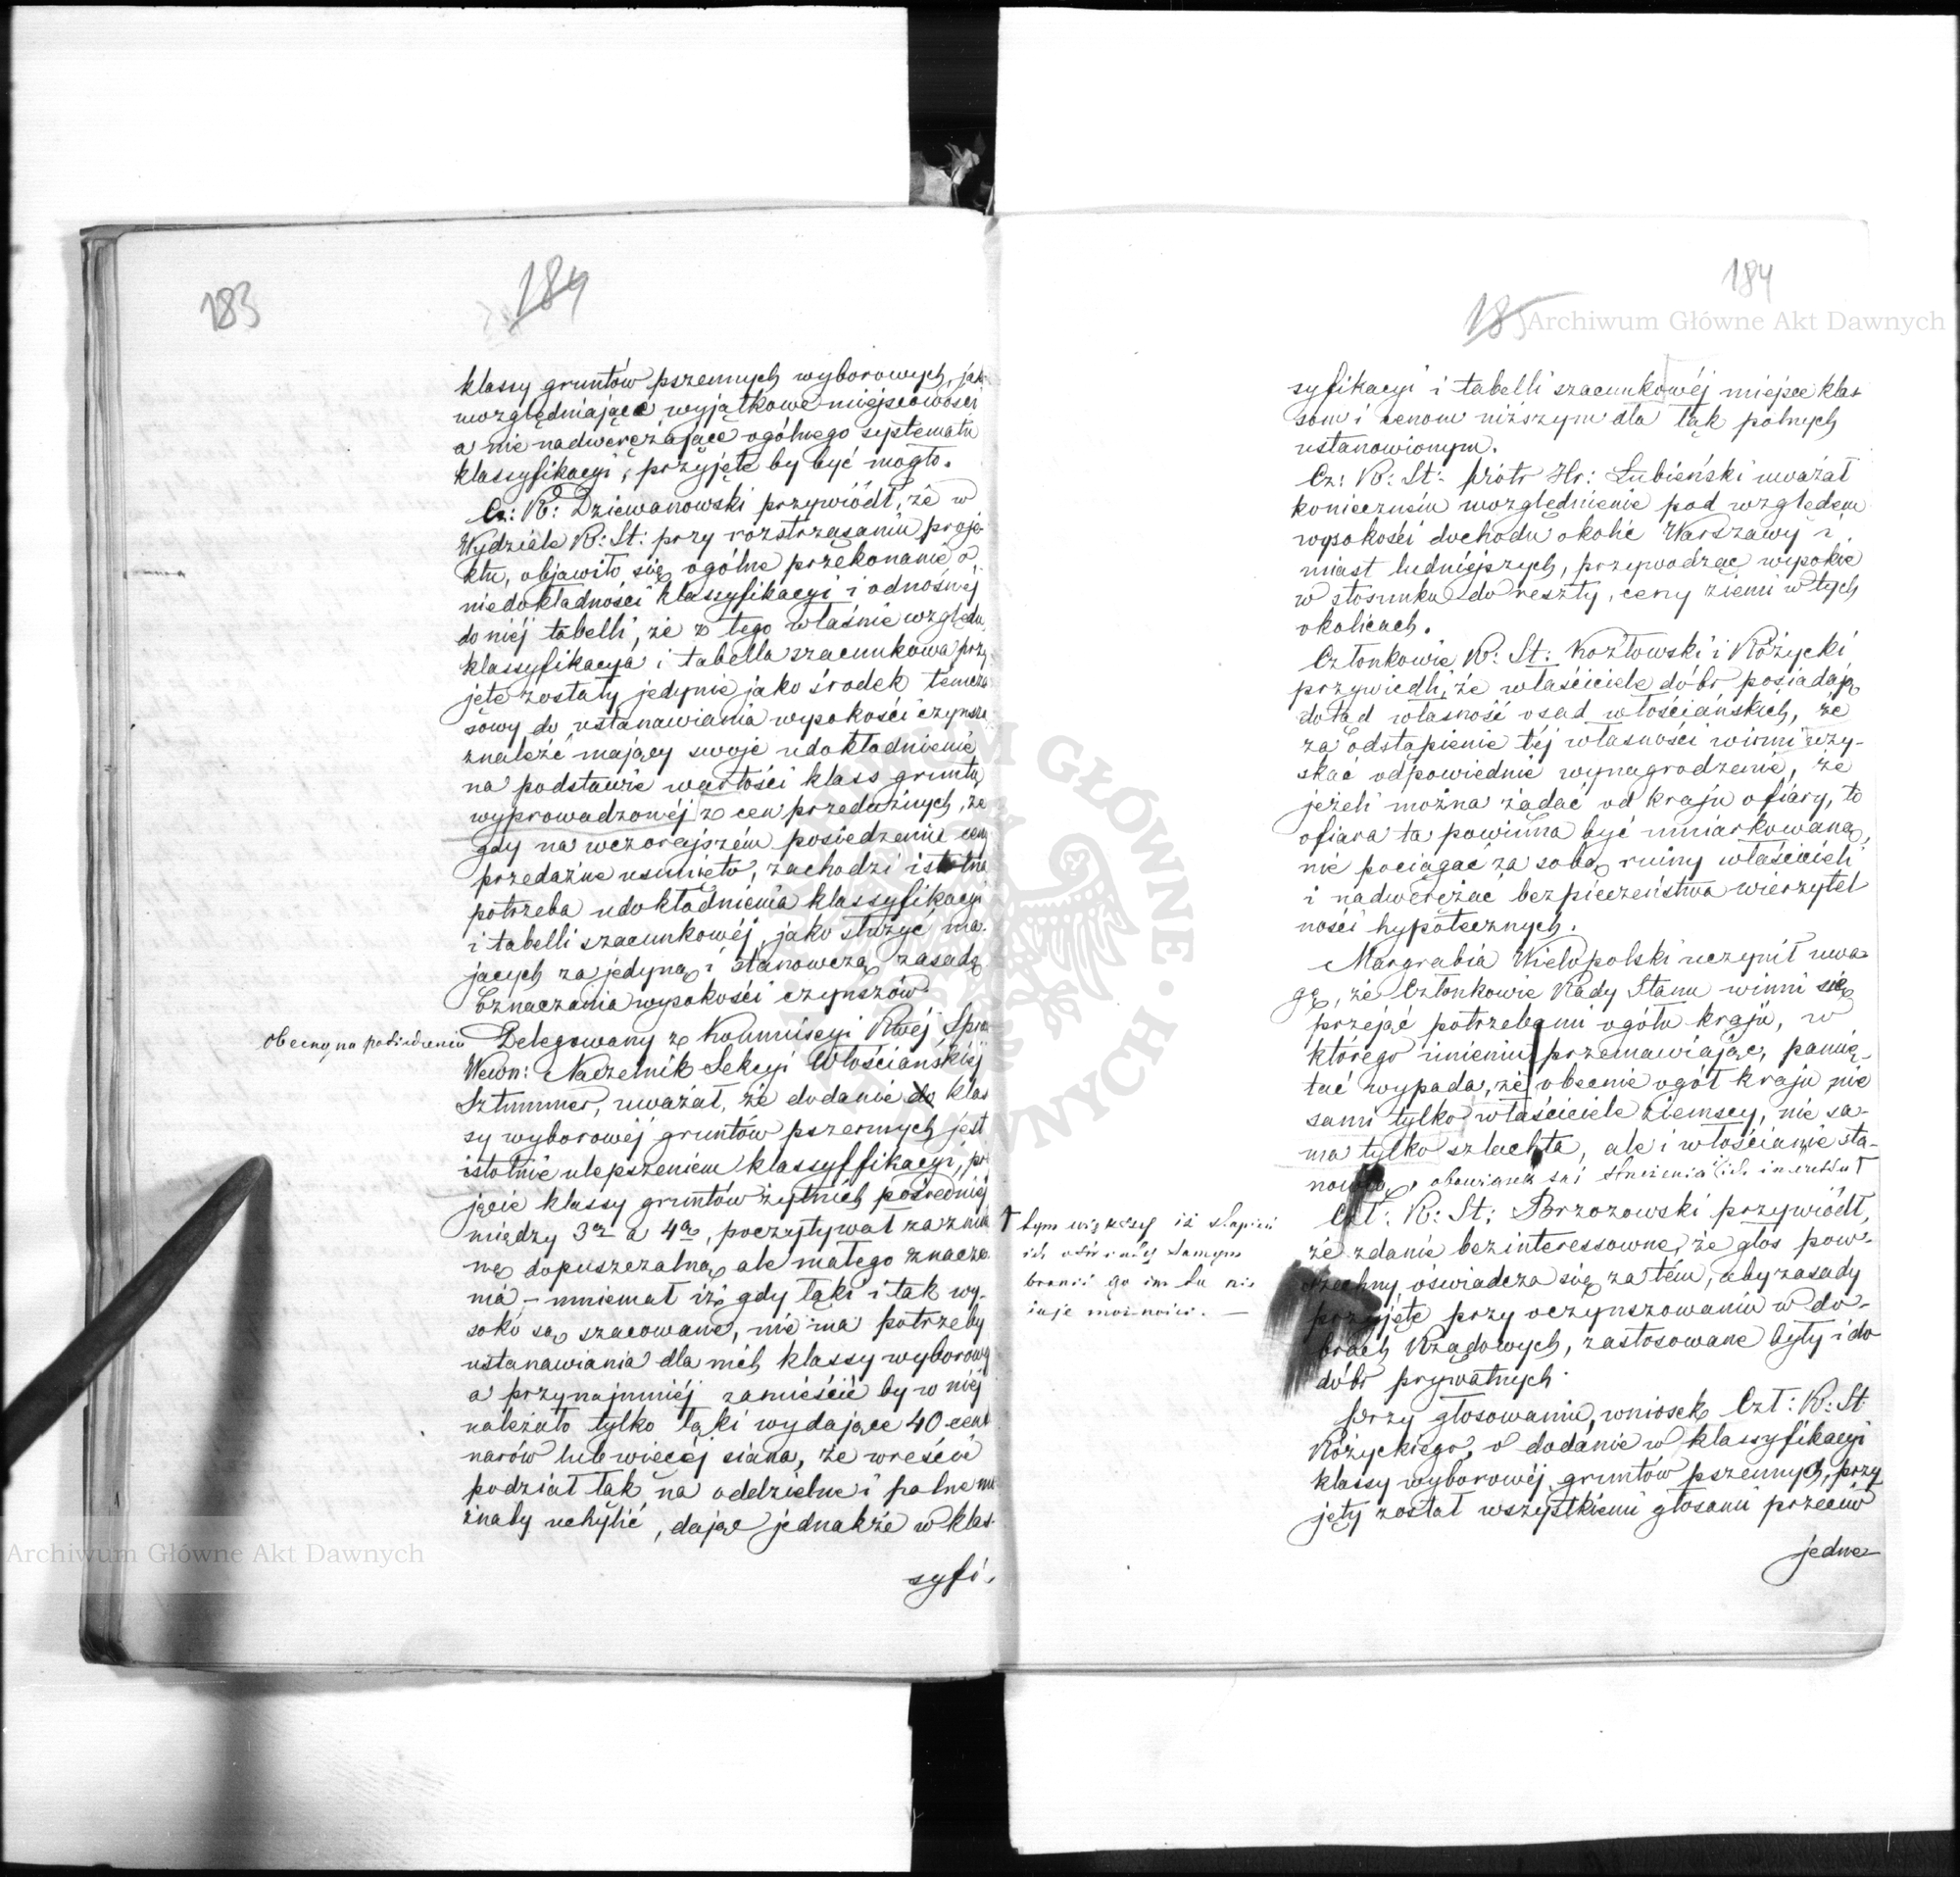 183
184
klassy gruntów pszennych wyborowych, jako
uwzględniające wyjątkowe miejscowości
a nie nadwerężające ogólnego systematu
klassyfikacyi, przyjęte by być mogło.
Cz: R: Dziewanowski przywiódł, że w
Wydziale R: St: przy rozstrząsaniu proje-
ktu, objawiło się ogólne przekonanie o
niedokładności klassyfikacyi i odnośnej
do niéj tabelli, że z tego właśnie względu
klassyfikacyá i tabella szacunkowa przy
jęte zostały jedynie jako środek tymcza
sowy do ustanawiania wysokości czynszu
znaleźć mający swoje udokładnienie
na podstawie wartości klass gruntu
wyprowadzonéj z cen przedażnych, że
gdy na wczorajszém posiedzeniu ceny
przedażne usunięto, zachodzi istotna
potrzeba udokładnienia klassyfikacyi
i tabelli szacunkowéj, jako służyć ma-
jących za jedyną i stanowczą zasadę
oznaczania wysokości czynszów.
obecny na posiedzeniu
Delegowany z Kommissyi Rwéj Spraw
Wewn: Naczelnik Sekcyi Włościańskiéj
Sztummer, uważał, że dodanie do klas
sy wyborowéj gruntów pszennych jest
istotnie ulepszeniem klassyffikacyi, po
jęcie klassy gruntów żytnich pośredniéj
między 3ą a 4ą, poczytywał za zmia
nę dopuszczalną ale małego znacze
nia, – mniemał iż gdy łąki i tak wy-
soko są szacowane, nie ma potrzeby
ustanawiania dla nich klassy wyborowéj
a przynajmniéj zamieścić by w niéj
należało tylko łąki wydające 40 cent
narów lub więcéj siana, że wreście
podział łąk na oddzielne i polne mo
żnaby uchylić, dając jednakże w klas-
syfi-
184
185
syfikacyi i tabelli szacunkowéj miejsce klas
som i cenom niższym dla łąk polnych
ustanowionym.
Cz: R: St: Piotr Hr: Łubieński uważał
koniecznem uwzględnienie pod względem
wysokości dochodu okolic Warszawy i
miast ludniéjszych, przywodząc wysokie
w stosunku do reszty, ceny ziemi w tych
okolicach.
Członkowie R: St: Kozłowski i Różycki
przywiedli, że właściciele dóbr posiadają
dotąd własność osad włościańskich, że
za odstąpienie téj własności winni uzy-
skać odpowiednie wynagrodzenie, że
jeżeli można żądać od kraju ofiary, to
ofiara ta powinna być umiarkowaną,
nie pociągać za sobą ruiny właścicieli
i nadwerężać bezpieczeństwa wierzytel
ności hypotecznych.
Margrabia Wielopolski uczynił uwa-
gę, że Członkowie Rady Stanu winni się
przejąć potrzebami ogółu kraju, w
którego imieniu przemawiając, pamię-
tać wypada, że obecnie ogół kraju nie
sami tylko właściciele ziemscy, nie sa-
ma tylko szlachta, ale i włościanie sta-
nowią, obowiązek zaś strzeżenia ich interessu
tym większy iż stopień
ich oświaty samym
bronić go im tu nie
daje możności. —
Czł: R: St: Brzozowski przywiódł,
że zdanie bezinteressowne, że głos pow-
szechny, oświadcza się za tém, aby zasady
przyjęte przy oczynszowaniu w do-
brach Rządowych, zastosowane były i do
dóbr prywatnych.
Przy głosowaniu, wniosek Czł: R: St
Różyckiego, o dodanie w klassyfikacyi
klassy wyborowéj gruntów pszennych, przy
jęty został wszystkiemi głosami przeciw
jedne-
Archiwum Główne Akt Dawnych
Archiwum Główne Akt Dawnych